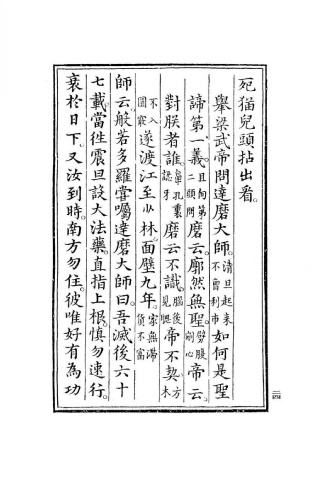 死猫兒頭拈出看。
舉梁武帝問達磨大師。清旦起來不曾利市如何是聖
諦第一義。且向第二頭問磨云。廓然無聖。劈腹剜心帝云。
對朕者誰。鼻孔裏認牙磨云不識。腦後見腮帝不契方木
不入圓竅遂渡江至少林。面壁九年。家無滯貨不富
師云。般若多羅嘗囑達磨大師曰。吾滅後六十
七載。當徃震旦設大法藥。直指上根。慎勿速行。
衰於日下。又汝到時。南方勿住。彼唯好有為功